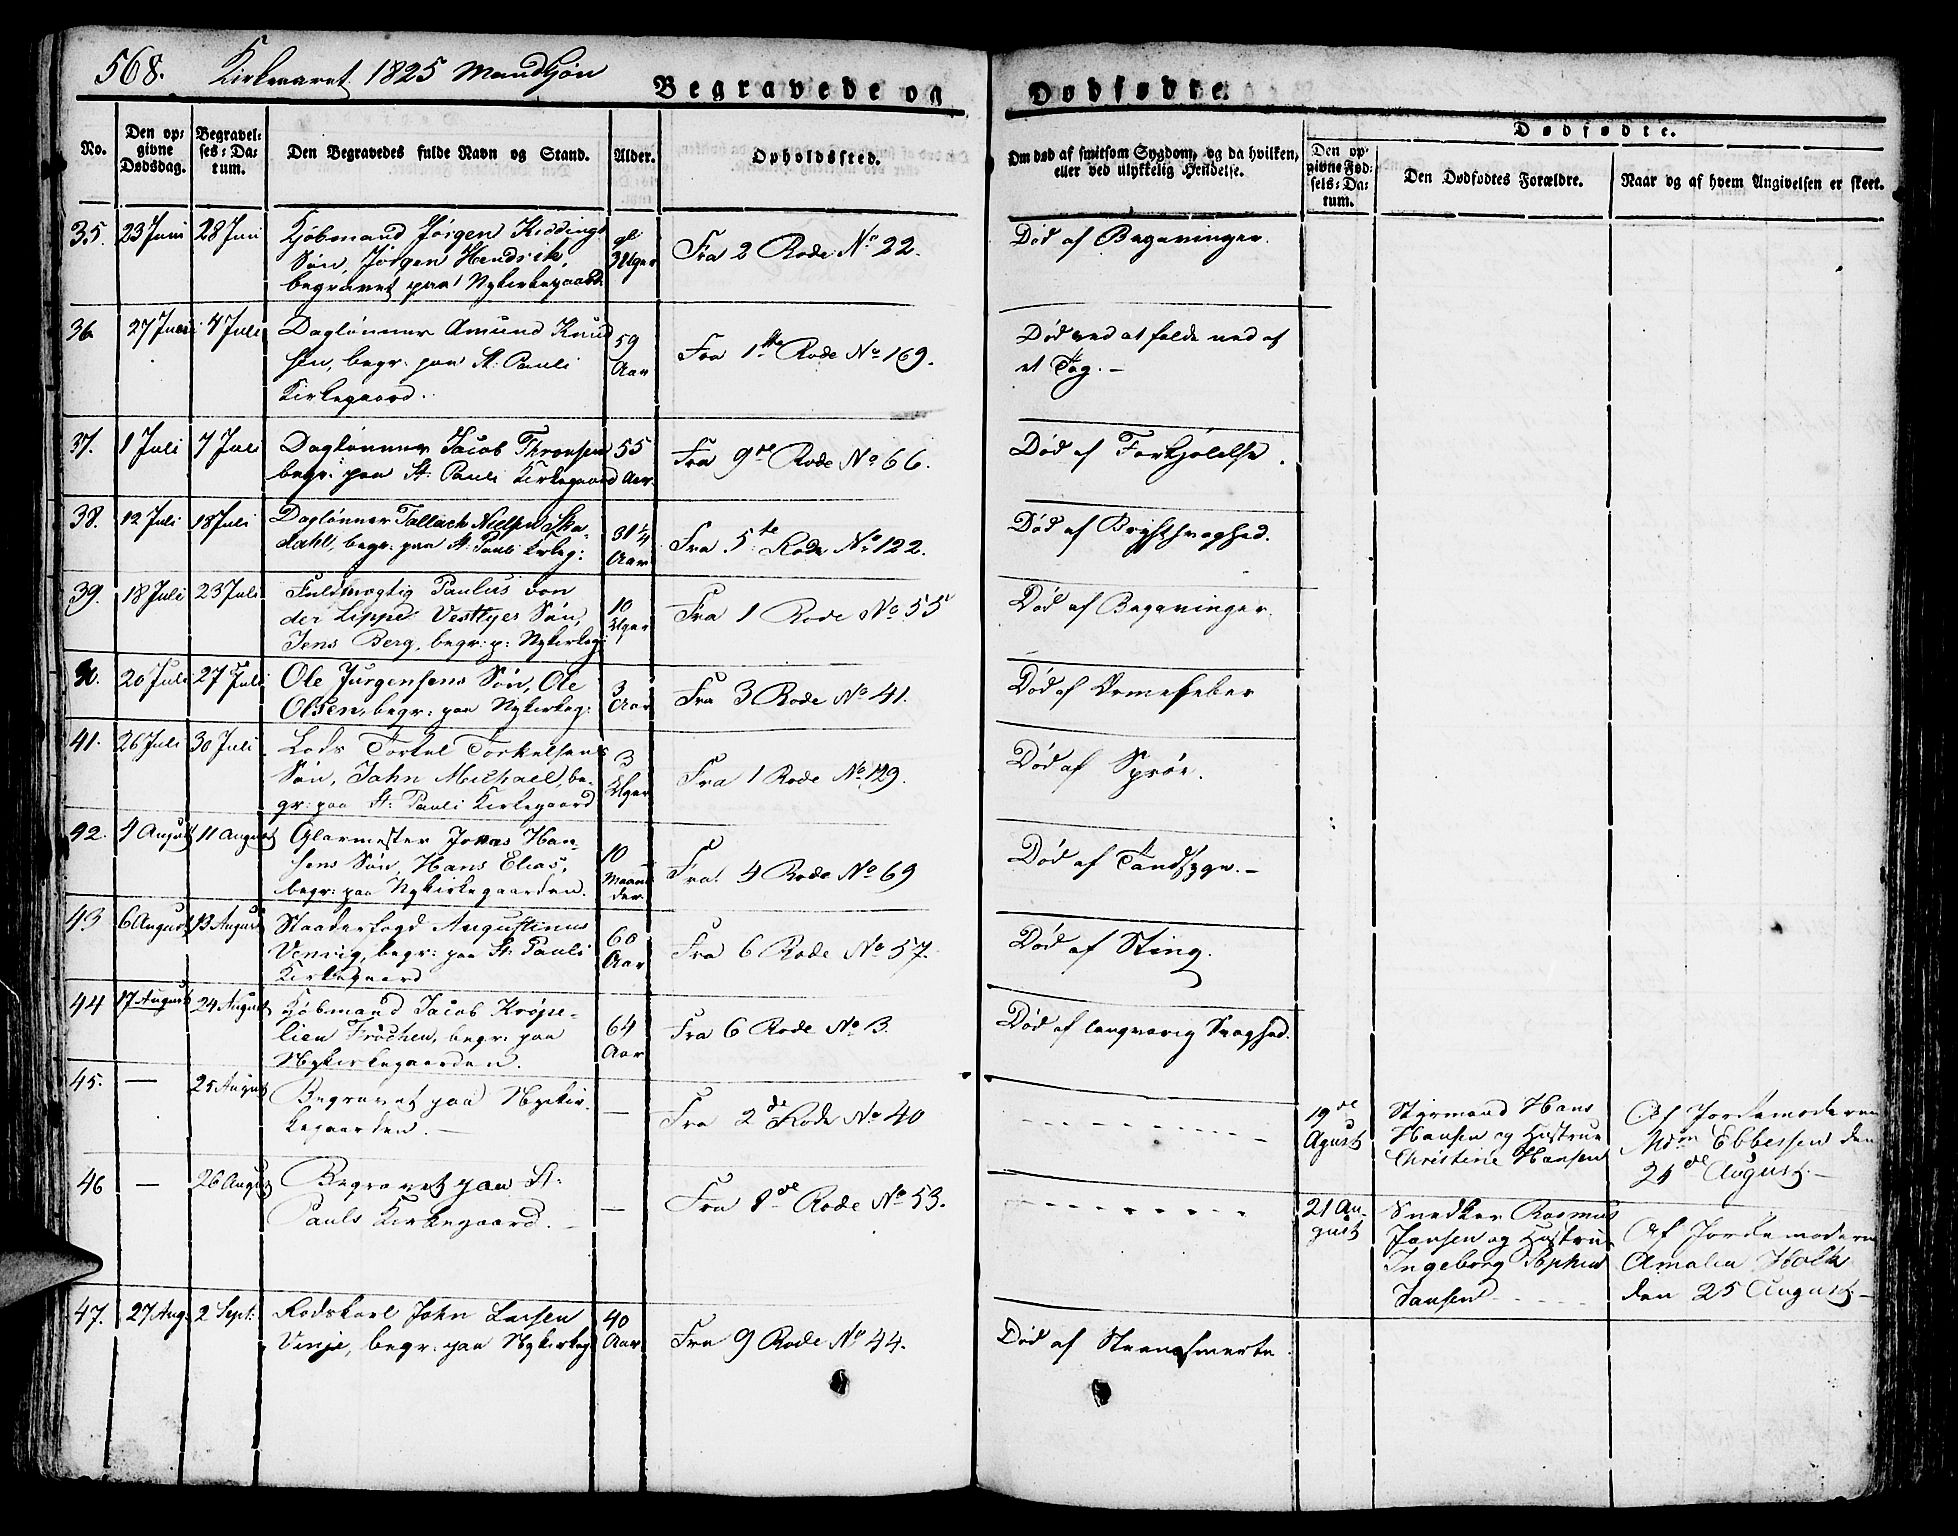 568. Kirkeaaret 1825 Mandkjøn
Begravede og Dødfødte.
No.
Den opgivne Dødsdag.
Begravelses-Datum.
Den Begravedes fulde Navn og Stand.
Alder.
Opholdssted.
Om død af smitsom Sygdom, og da hvilken,
eller ved ulykkelig Hendelse.
Dødfødte.
Den opgivne Fødsels-Datum.
Den Dødfødtes Forældre.
Naar og af hvem Angivelsen er skeet.
35. 23 Juni 28 Juni Kjøbmand Jørgen
Søn, Jørgen Hendrik,
begravet paa Nykirkegaard.
3 Uger
Fra 2 Rode No 22.
Død af Begavninger.
36. 27 Juni 4 Juli Daglønner Amund Knud
sen, begr: paa St: Pauli
Kirkegaard.
59 Aar
Fra 1ste Rode No 169.
Død ved at falde ned af
et Tag. —
37. 1 Juli 7 Juli Daglønner Jacob Thronsen
begr: paa St: Pauli Kirkegaard
55 Aar.
Fra 9de Rode No 66.
Død af Forkjølelse.
38. 12 Juli 18 Juli Daglønner Tallach Nielsen Ska
dahl, begr: paa St: Pauli Kirkeg:
31 1/4 Aar
Fra 5te Rode No 122.
Død af Brystsvaghed.
39. 18 Juli 23 Juli Fuldmægtig Paulus von
der Lippe Vestlyes Søn,
Jens Berg, begr: p: Nykirkeg:
10 Uger
Fra 1 Rode No 55
Død af Begavninger.
20 Juli 27 Juli Ole Jurgensens Søn, Ole
Olsen, begr: paa Nykirkeg:
3 Aar
Fra 3 Rode No 41.
Død af Ormefeber
41. 26 Juli 30 Juli Lods Torkel Torkelsens
Søn, John Michael, be-
gr: paa St: Pauli Kirkegaard
3 Uger
Fra 1 Rode No 129.
Død af
42. 4 August 11 August Glarmester Jonas Han-
sens Søn, Hans Elias,
begr: paa Nykirkegaarden.
10 Maaneder
Fra 4 Rode No 69
Død af Tandsyge. —
43 6 August 13 August Augustinus
begr: paa St: Pauli
Kirkegaard
60 Aar
Fra 6 Rode No 57.
Død af Sting.
44 17 August 24 August Kjøbmand Jacob Krøpe-
lien Frøchen, begr: paa
Nykirkegaarden.
64 Aar
Fra 6 Rode No 3.
Død af langvarig Svaghed.
45. — 25 August Begravet paa Nykir-
kegaarden. —
—
Fra 2de Rode No 40
19de Agust
Styrmand Hans
Hansen og Hustrue
Christine Hansen
Af Jordemoderen
Mdm Ebbesen den
August. —
46 — 26 August Begravet paa St:
Pauls Kirkegaard. —
—
Fra 8de Rode No 53.
21 August
Snedker Rasmus
Jansen og Hustrue
Ingeborg Sophia
Jansen
Af Jordemoderen
Amalia Holk
den 25 August. —
47. 27 Aug: 2 Sept: Rodskarl John Larsen
Vinje, begr: paa Nykirkeg:
40 Aar
Fra 9 Rode No 44.
Død af Steensmerte.